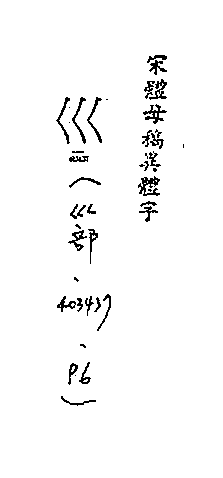 宋體母稿異體字
巛
（巛部、403437、P6）